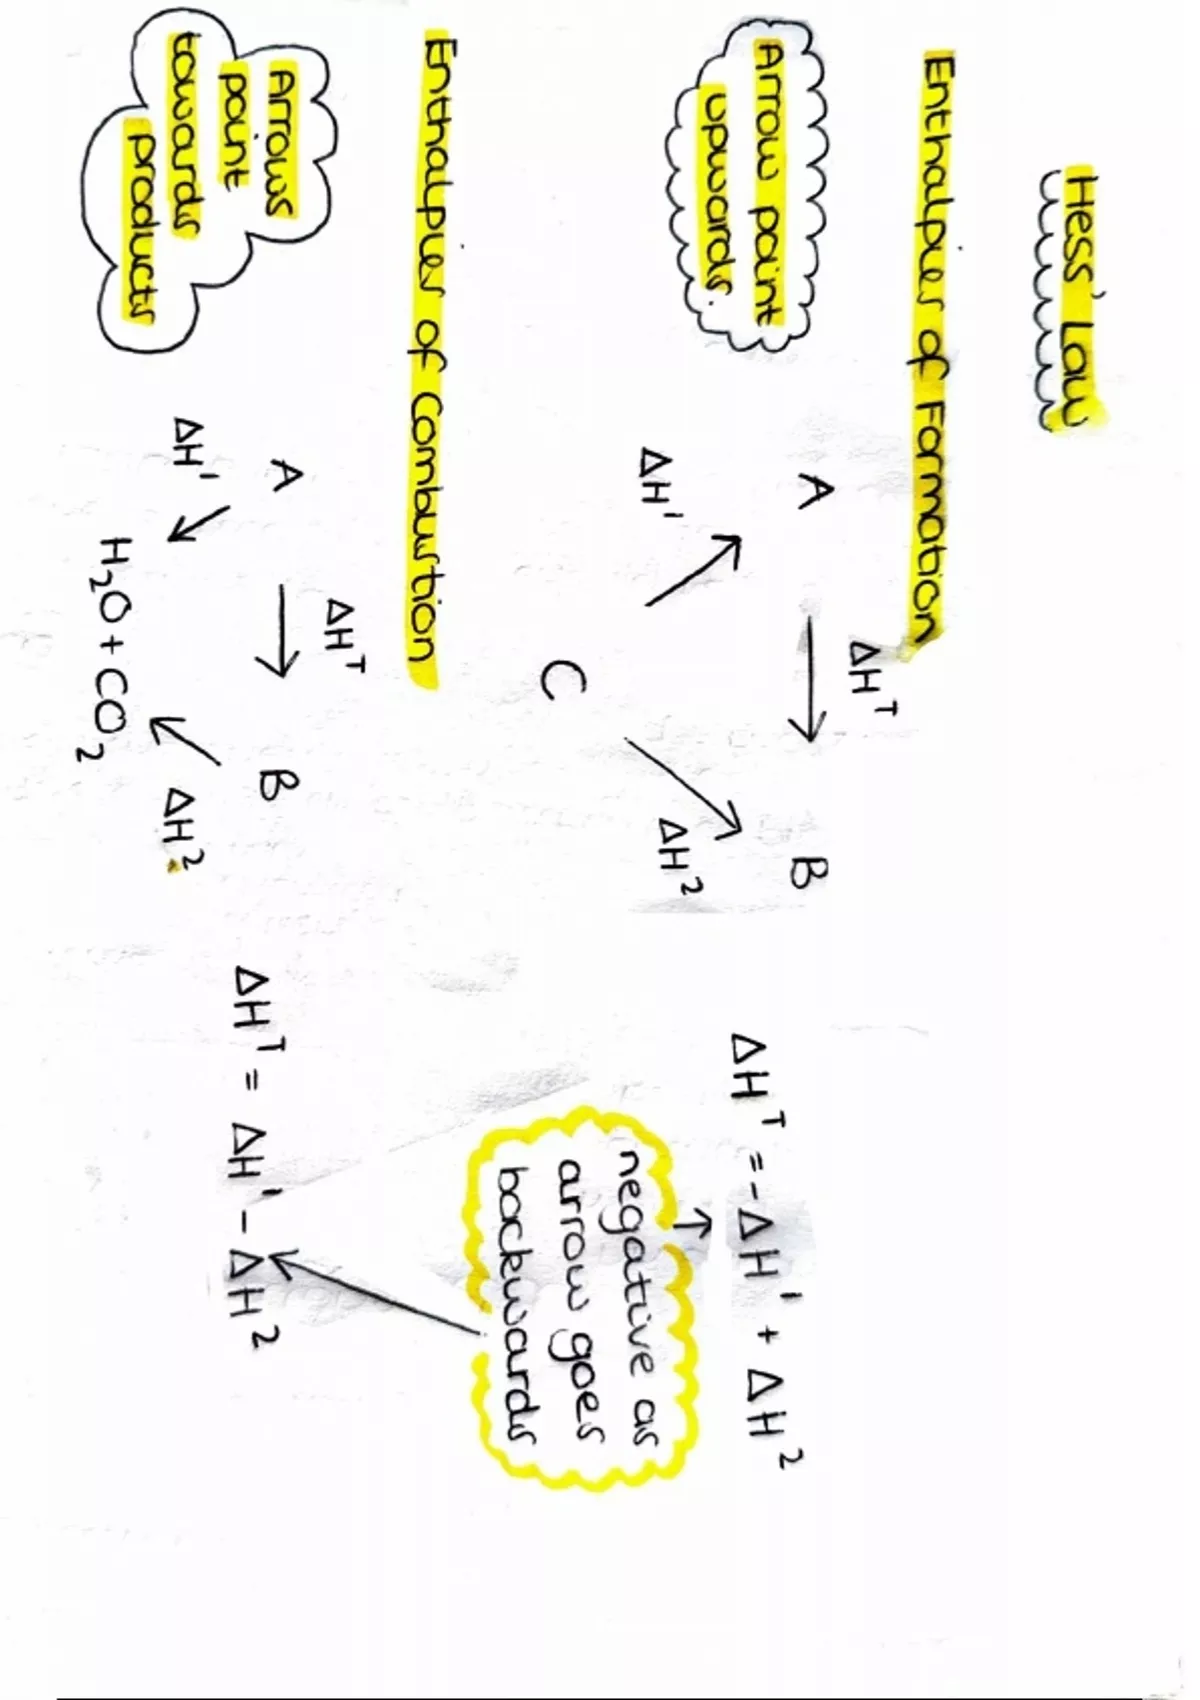 Hess' Law
Enthalpies of Formation
Arrow point
upwards.
A
ΔHᵀ
B
ΔH¹
C
ΔH²
ΔHᵀ = -ΔH¹ + ΔH²
negative as
arrow goes
backwards
Enthalpies of Combustion
Arrows
point
towards
products
A
ΔHᵀ
B
ΔH¹
H₂O + CO₂
ΔH²
ΔHᵀ = ΔH¹ - ΔH²